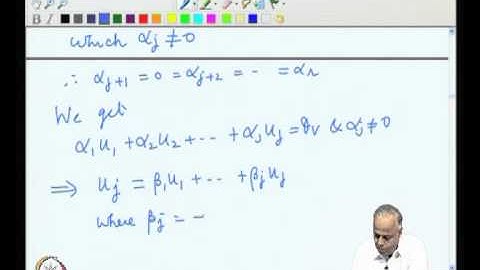 which αj ≠ 0
∴ αj+1 = 0 = αj+2 = - = αr
We get
α1u1 + α2u2 + -- + αjuj = θV & αj ≠ 0
⟹ uj = β1u1 + -- + βjuj
where βj = -